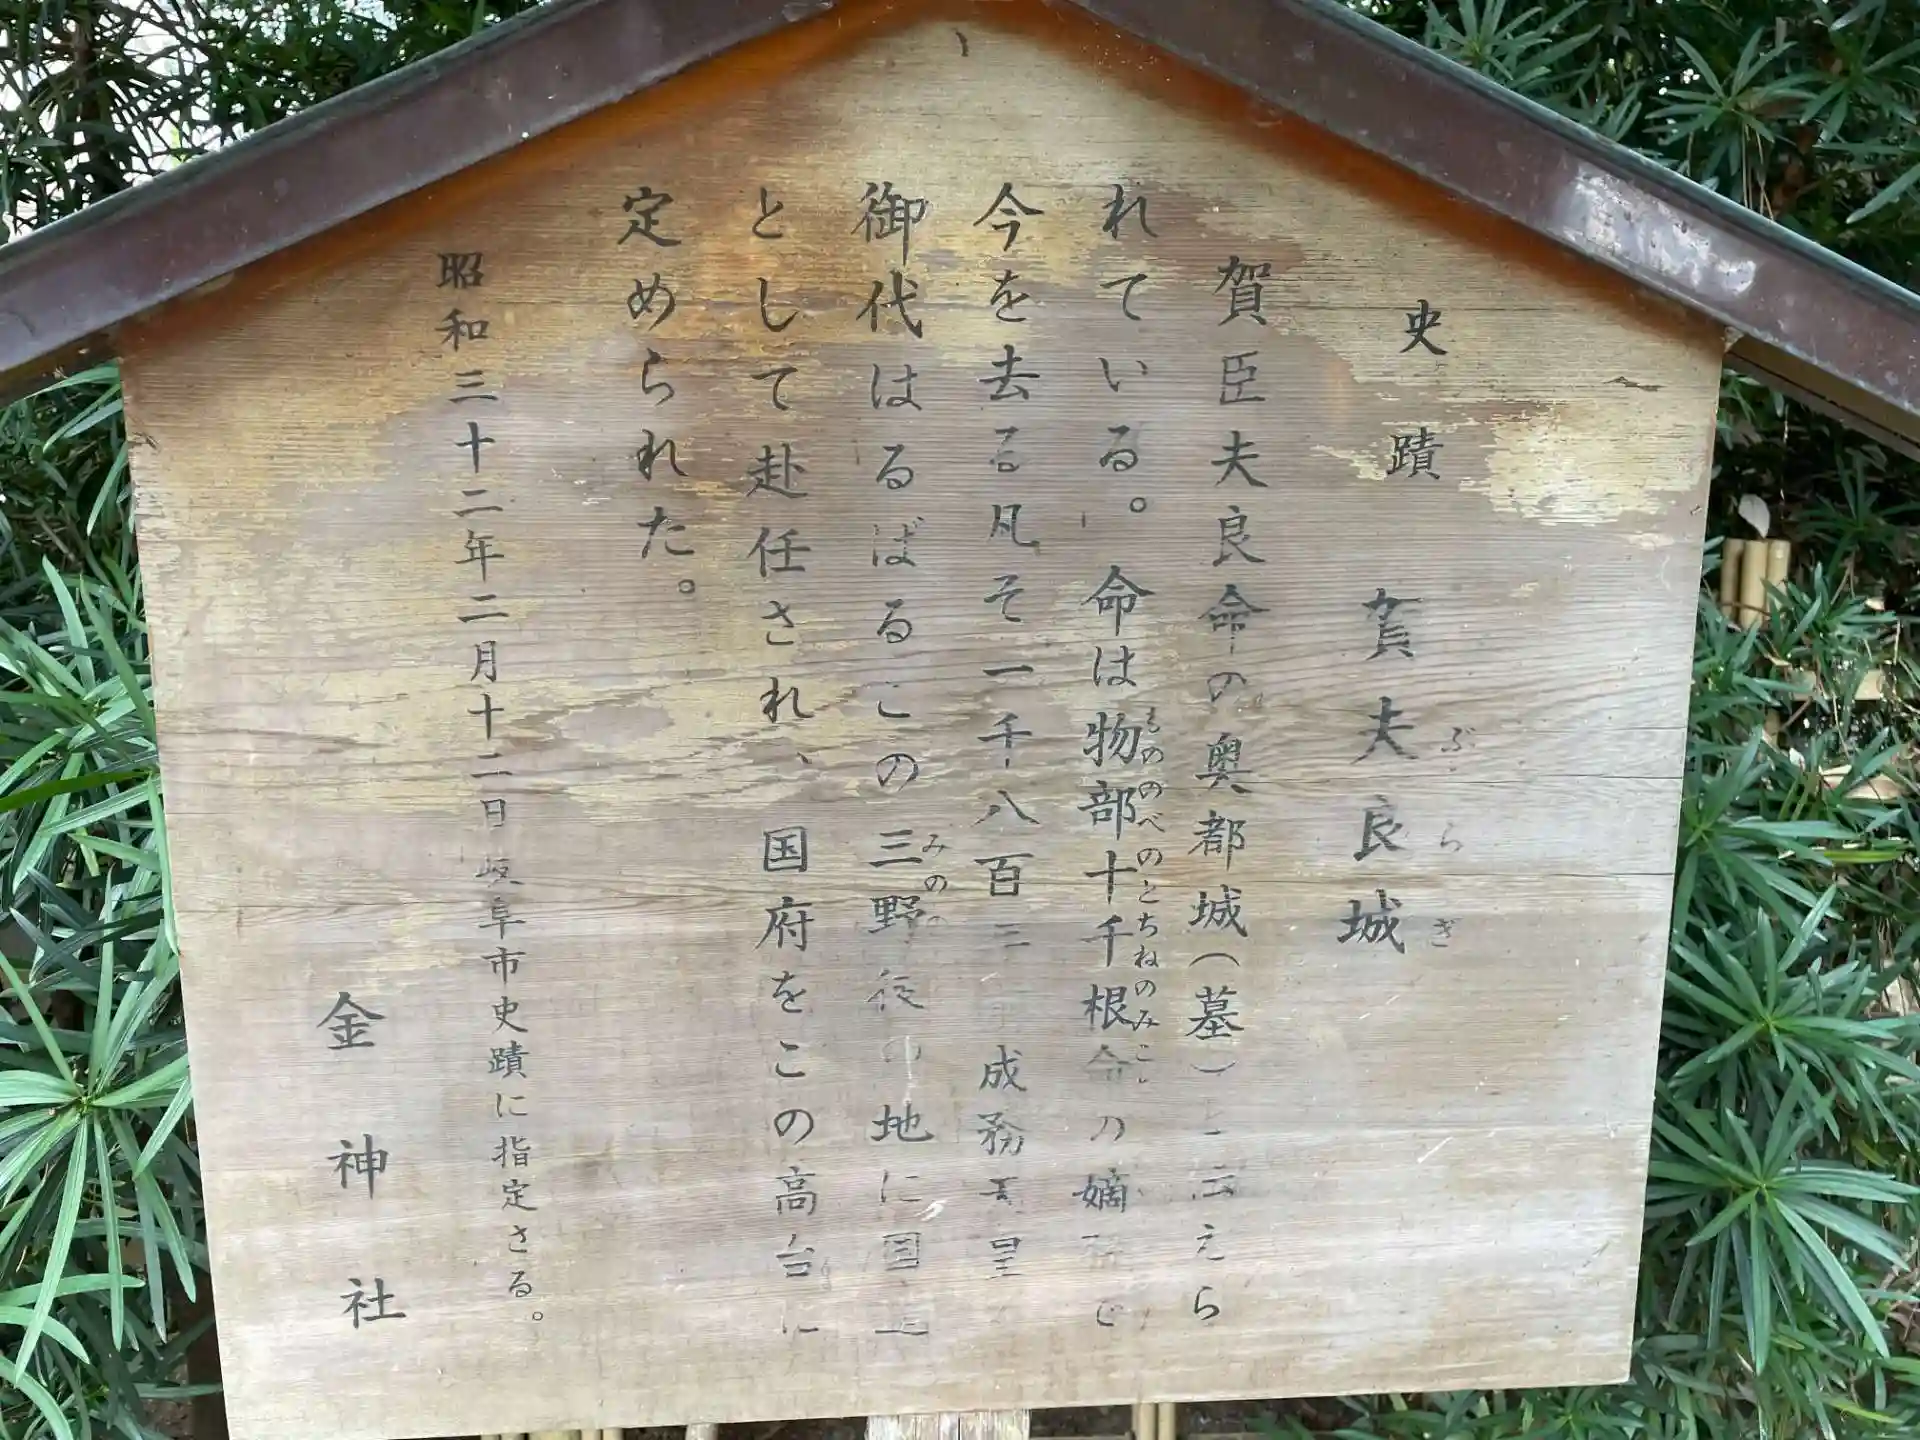 史蹟 賀夫良城
ぶらぎ
賀臣夫良命の奥都城(墓)と云えら
れている。命は物部十千根命の嫡孫で
もののべのとちねのみこ
今を去る凡そ一千八百三 成務天皇
御代はるばるこの三野後の地に国造
みの
として赴任され、国府をこの高台に
定められた。
昭和三十二年二月十二日岐阜市史蹟に指定さる。
金神社